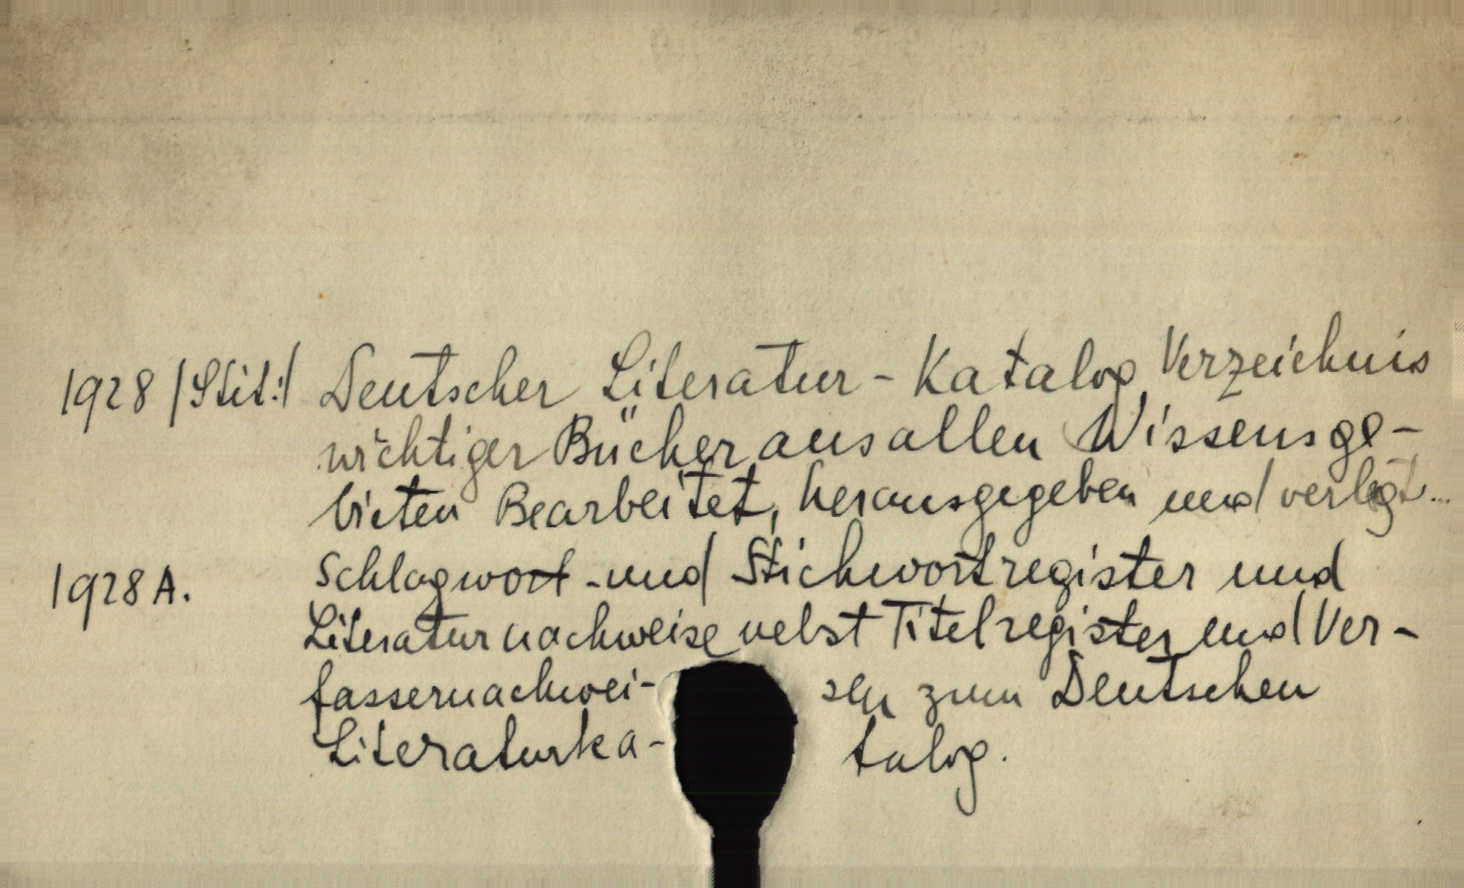 1928 /Stit:/ Deutscher Literatur-Katalog Verzeichnis
wichtiger Bücher aus allen Wissensge-
bieten Bearbeitet, herausgegeben und verlegt...
1928 A. Schlagwort-und Stichwortregister und
Literaturnachweise nebst Titelregister und Ver-
fassernachwei- sen zum Deutschen
Literaturka- talog.